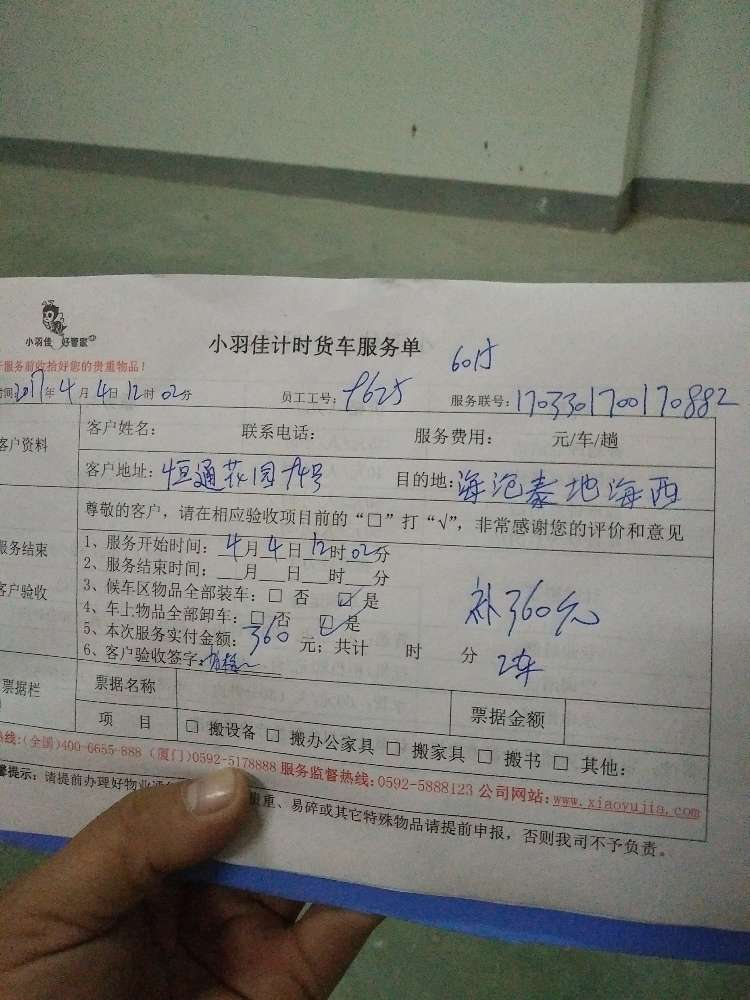 小羽佳 好管家
小羽佳计时货车服务单
服务前收拾好您的贵重物品！
时间：2017年4月4日12时02分 员工工号：9625 服务联号：170330170017 0882
客户资料
客户姓名： 联系电话： 服务费用： 元/车/趟
客户地址：恒通花园74号 目的地：海沧泰地海西
尊敬的客户，请在相应验收项目前的“□”打“√”，非常感谢您的评价和意见
服务结束
客户验收
1、服务开始时间：4月4日12时02分
2、服务结束时间：___月___日___时___分
3、候车区物品全部装车：□ 否 ☑ 是
补360元
4、车上物品全部卸车：□ 否 ☑ 是
5、本次服务实付金额：360元；共计 时 分 2车
6、客户验收签字：
票据栏
票据名称 票据金额
项 目 □ 搬设备 □ 搬办公家具 □ 搬家具 □ 搬书 □ 其他：
热线:(全国)400-6655-888 (厦门)0592-5178888 服务监督热线:0592-5888123 公司网站:www.xiaoyujia.com
提示：请提前办理好物业 重、易碎或其它特殊物品请提前申报，否则我司不予负责。